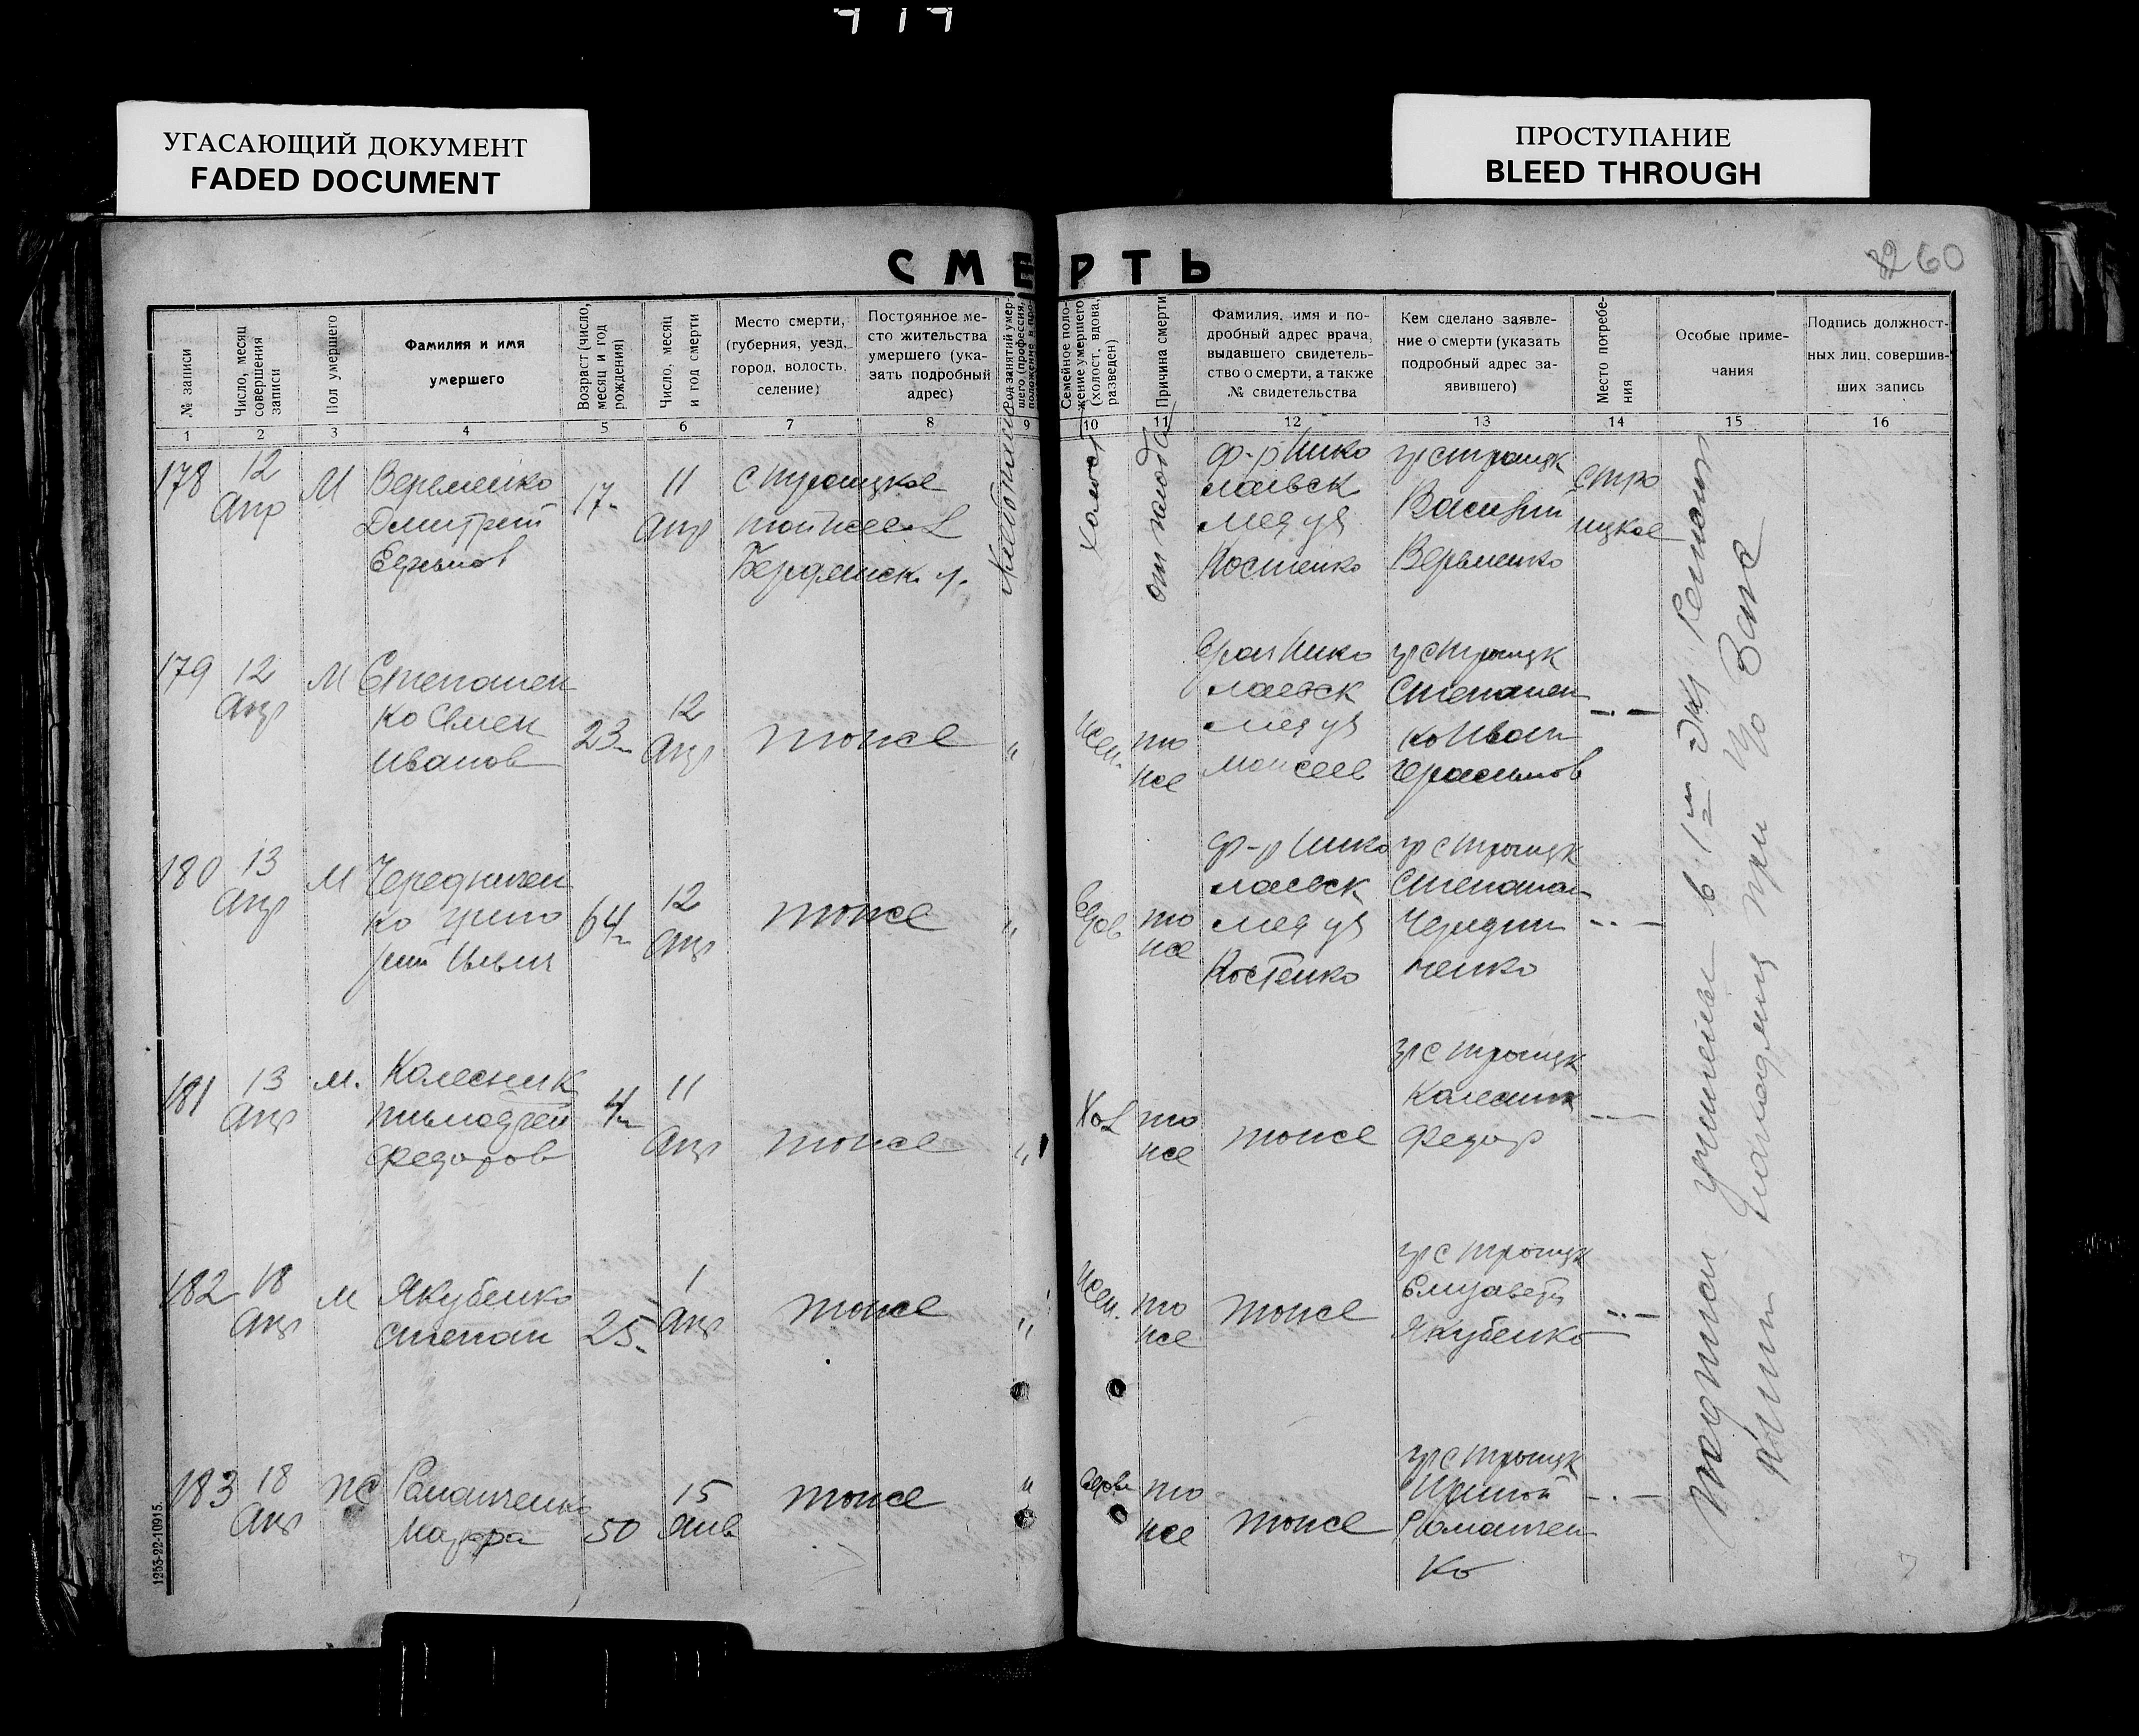 УГАСАЮЩИЙ ДОКУМЕНТ
FADED DOCUMENT
ПРОСТУПАНИЕ
BLEED THROUGH
СМЕРТЬ
260
№ записи
Число, месяц совершения записи
Пол умершего
Фамилия и имя
умершего
Возраст (число, месяц и год рождения)
Число, месяц и год смерти
Место смерти,
(губерния, уезд,
город, волость,
селение)
Постоянное ме-
сто жительства
умершего (ука-
зать подробный
адрес)
Род занятий умер-
шего (профессия,
Семейное поло-
жение умершего
(холост, вдова,
разведен)
Причина смерти
Фамилия, имя и по-
дробный адрес врача,
выдавшего свидетель-
ство о смерти, а также
№ свидетельства
Кем сделано заявле-
ние о смерти (указать
подробный адрес за-
явившего)
Место погребе-
ния
Особые приме-
чания
Подпись должност-
ных лиц, совершив-
ших запись
1 2 3 4 5 6 7 8 9 10 11 12 13 14 15 16
178
12
Апр
М
Веременко
Дмитрий
17
11
Апр
с Троицкое
той же
Бердянск у.
Холост
от голода
ф-р Нико
лаевск
мед уч
Костенко
гр с Троицк
Василий
Веременко
с Тро
ицкое
179
12
Апр
М
Степанен
ко Семен
Иванов
23
12
Апр
тоже
"
жен.
то
же
Врач Нико
лаевск
мед уч
Моисеев
гр с Троицк
Степанен
ко Иван
Герасимов
180
13
Апр
М
Чередничен
ко Григо
рий Ильич
64
12
Апр
тоже
"
Вдов
то
же
ф-р Нико
лаевск
мед уч
Костенко
гр с Троицк
Степанан
Чередни
ченко
181
13
Апр
М.
Колесник
Тимофей
Федоров
4
11
Апр
тоже
"
Хол
то
же
тоже
гр с Троицк
Колесник
Федор
182
18
Апр
М
Якубенко
Степан
25
1
Апр
тоже
"
жен.
то
же
тоже
гр с Троицк
Елизавета
Якубенко
183
18
Апр
Ж
Романченко
50
15
Янв
тоже
"
то
же
тоже
гр с Троицк
Романчен
ко
в 1м Экз
при
1253-22-10915.